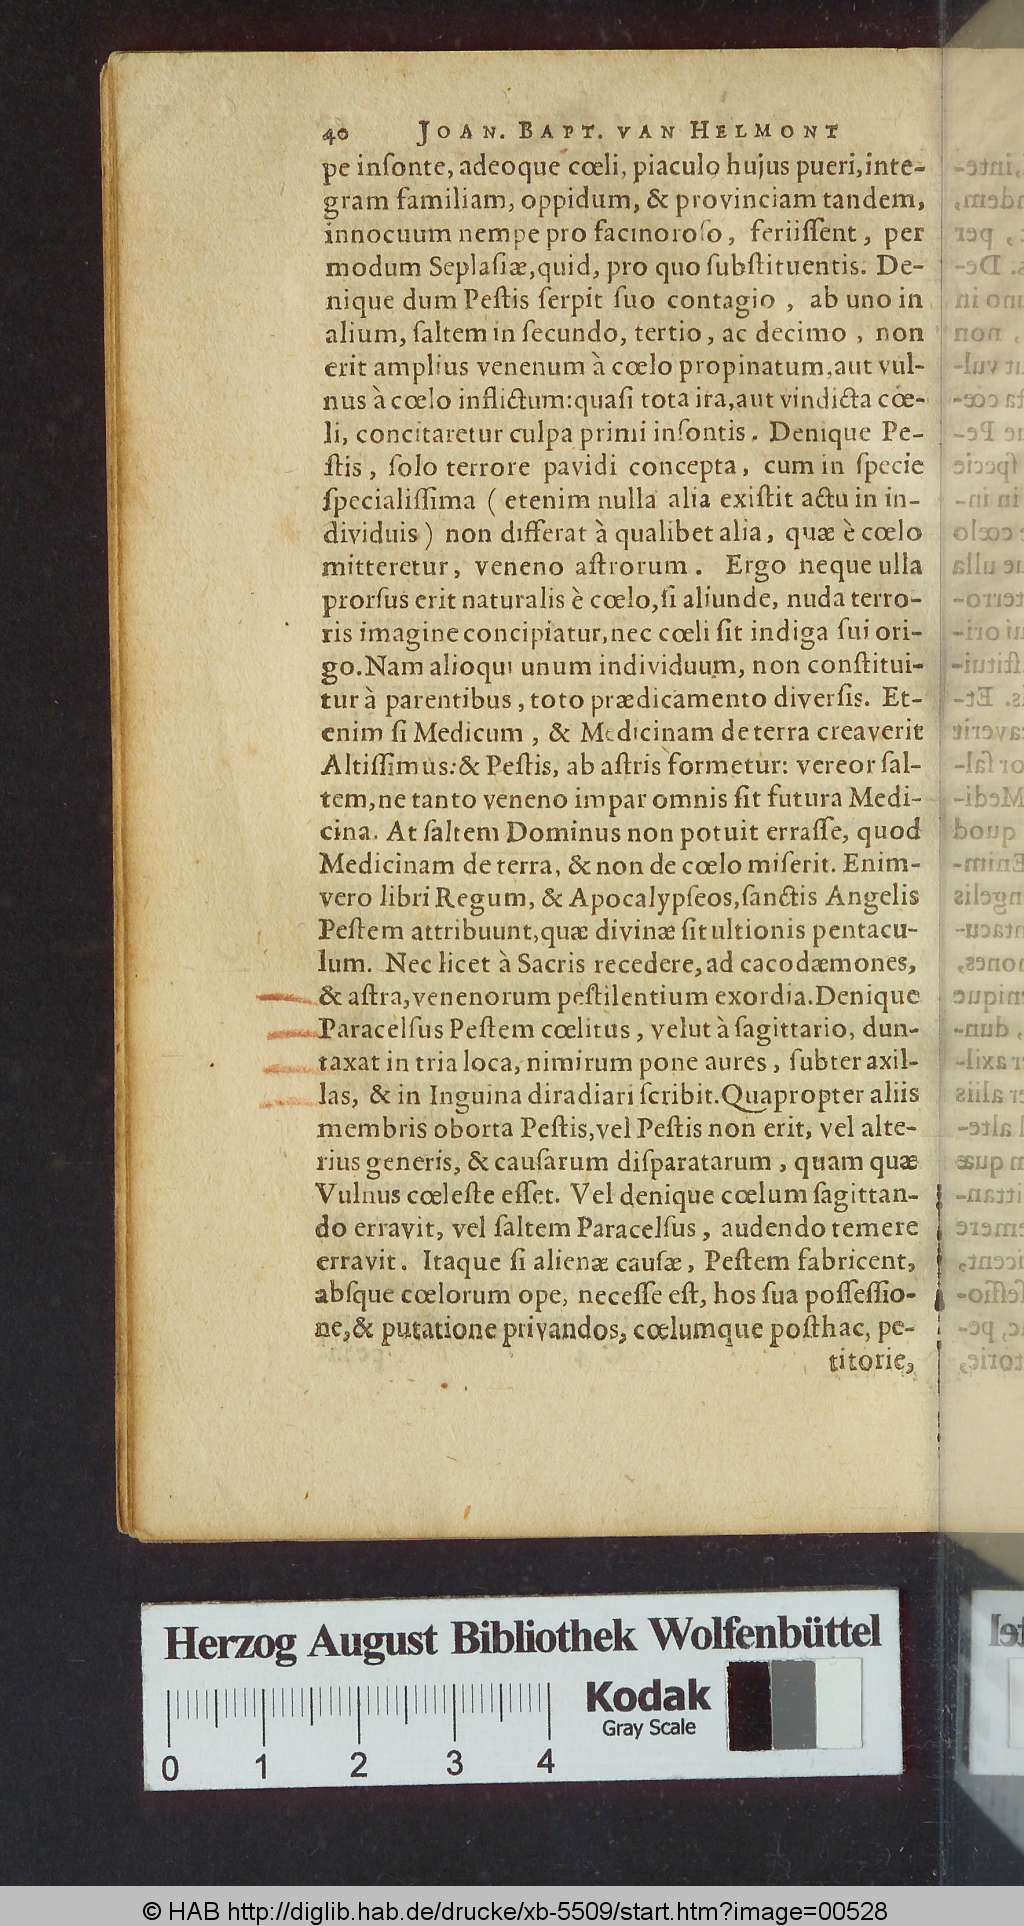 40 JOAN. BAPT. VAN HELMONT
pe inſonte, adeoque cœli, piaculo hujus pueri, inte-
gram familiam, oppidum, & provinciam tandem,
innocuum nempe pro facinoroſo, feriiſſent, per
modum Seplaſiæ, quid, pro quo ſubſtituentis. De-
nique dum Peſtis ſerpit ſuo contagio, ab uno in
alium, ſaltem in ſecundo, tertio, ac decimo, non
erit amplius venenum à cœlo propinatum, aut vul-
nus à cœlo inflictum: quaſi tota ira, aut vindicta cœ-
li, concitaretur culpa primi inſontis. Denique Pe-
ſtis, ſolo terrore pavidi concepta, cum in ſpecie
ſpecialiſſima (etenim nulla alia exiſtit actu in in-
dividuis) non differat à qualibet alia, quæ è cœlo
mitteretur, veneno aſtrorum. Ergo neque ulla
prorſus erit naturalis è cœlo, ſi aliunde, nuda terro-
ris imagine concipiatur, nec cœli ſit indiga ſui ori-
go. Nam alioqui unum individuum, non conſtitui-
tur à parentibus, toto prædicamento diverſis. Et-
enim ſi Medicum, & Medicinam de terra creaverit
Altiſſimus: & Peſtis, ab aſtris formetur: vereor ſal-
tem, ne tanto veneno impar omnis ſit futura Medi-
cina. At ſaltem Dominus non potuit erraſſe, quod
Medicinam de terra, & non de cœlo miſerit. Enim-
vero libri Regum, & Apocalypſeos, ſanctis Angelis
Peſtem attribuunt, quæ divinæ ſit ultionis pentacu-
lum. Nec licet à Sacris recedere, ad cacodæmones,
& aſtra, venenorum peſtilentium exordia. Denique
Paracelſus Peſtem cœlitus, velut à ſagittario, dun-
taxat in tria loca, nimirum pone aures, ſubter axil-
las, & in Inguina diradiari ſcribit. Quapropter aliis
membris oborta Peſtis, vel Peſtis non erit, vel alte-
rius generis, & cauſarum diſparatarum, quam quæ
Vulnus cœleſte eſſet. Vel denique cœlum ſagittan-
do erravit, vel ſaltem Paracelſus, audendo temere
erravit. Itaque ſi alienæ cauſæ, Peſtem fabricent,
abſque cœlorum ope, neceſſe eſt, hos ſua poſſeſſio-
ne, & putatione privandos, cœlumque poſthac, pe-
titorie,
Herzog August Bibliothek Wolfenbüttel
Kodak
Gray Scale
0 1 2 3 4
© HAB http://diglib.hab.de/drucke/xb-5509/start.htm?image=00528